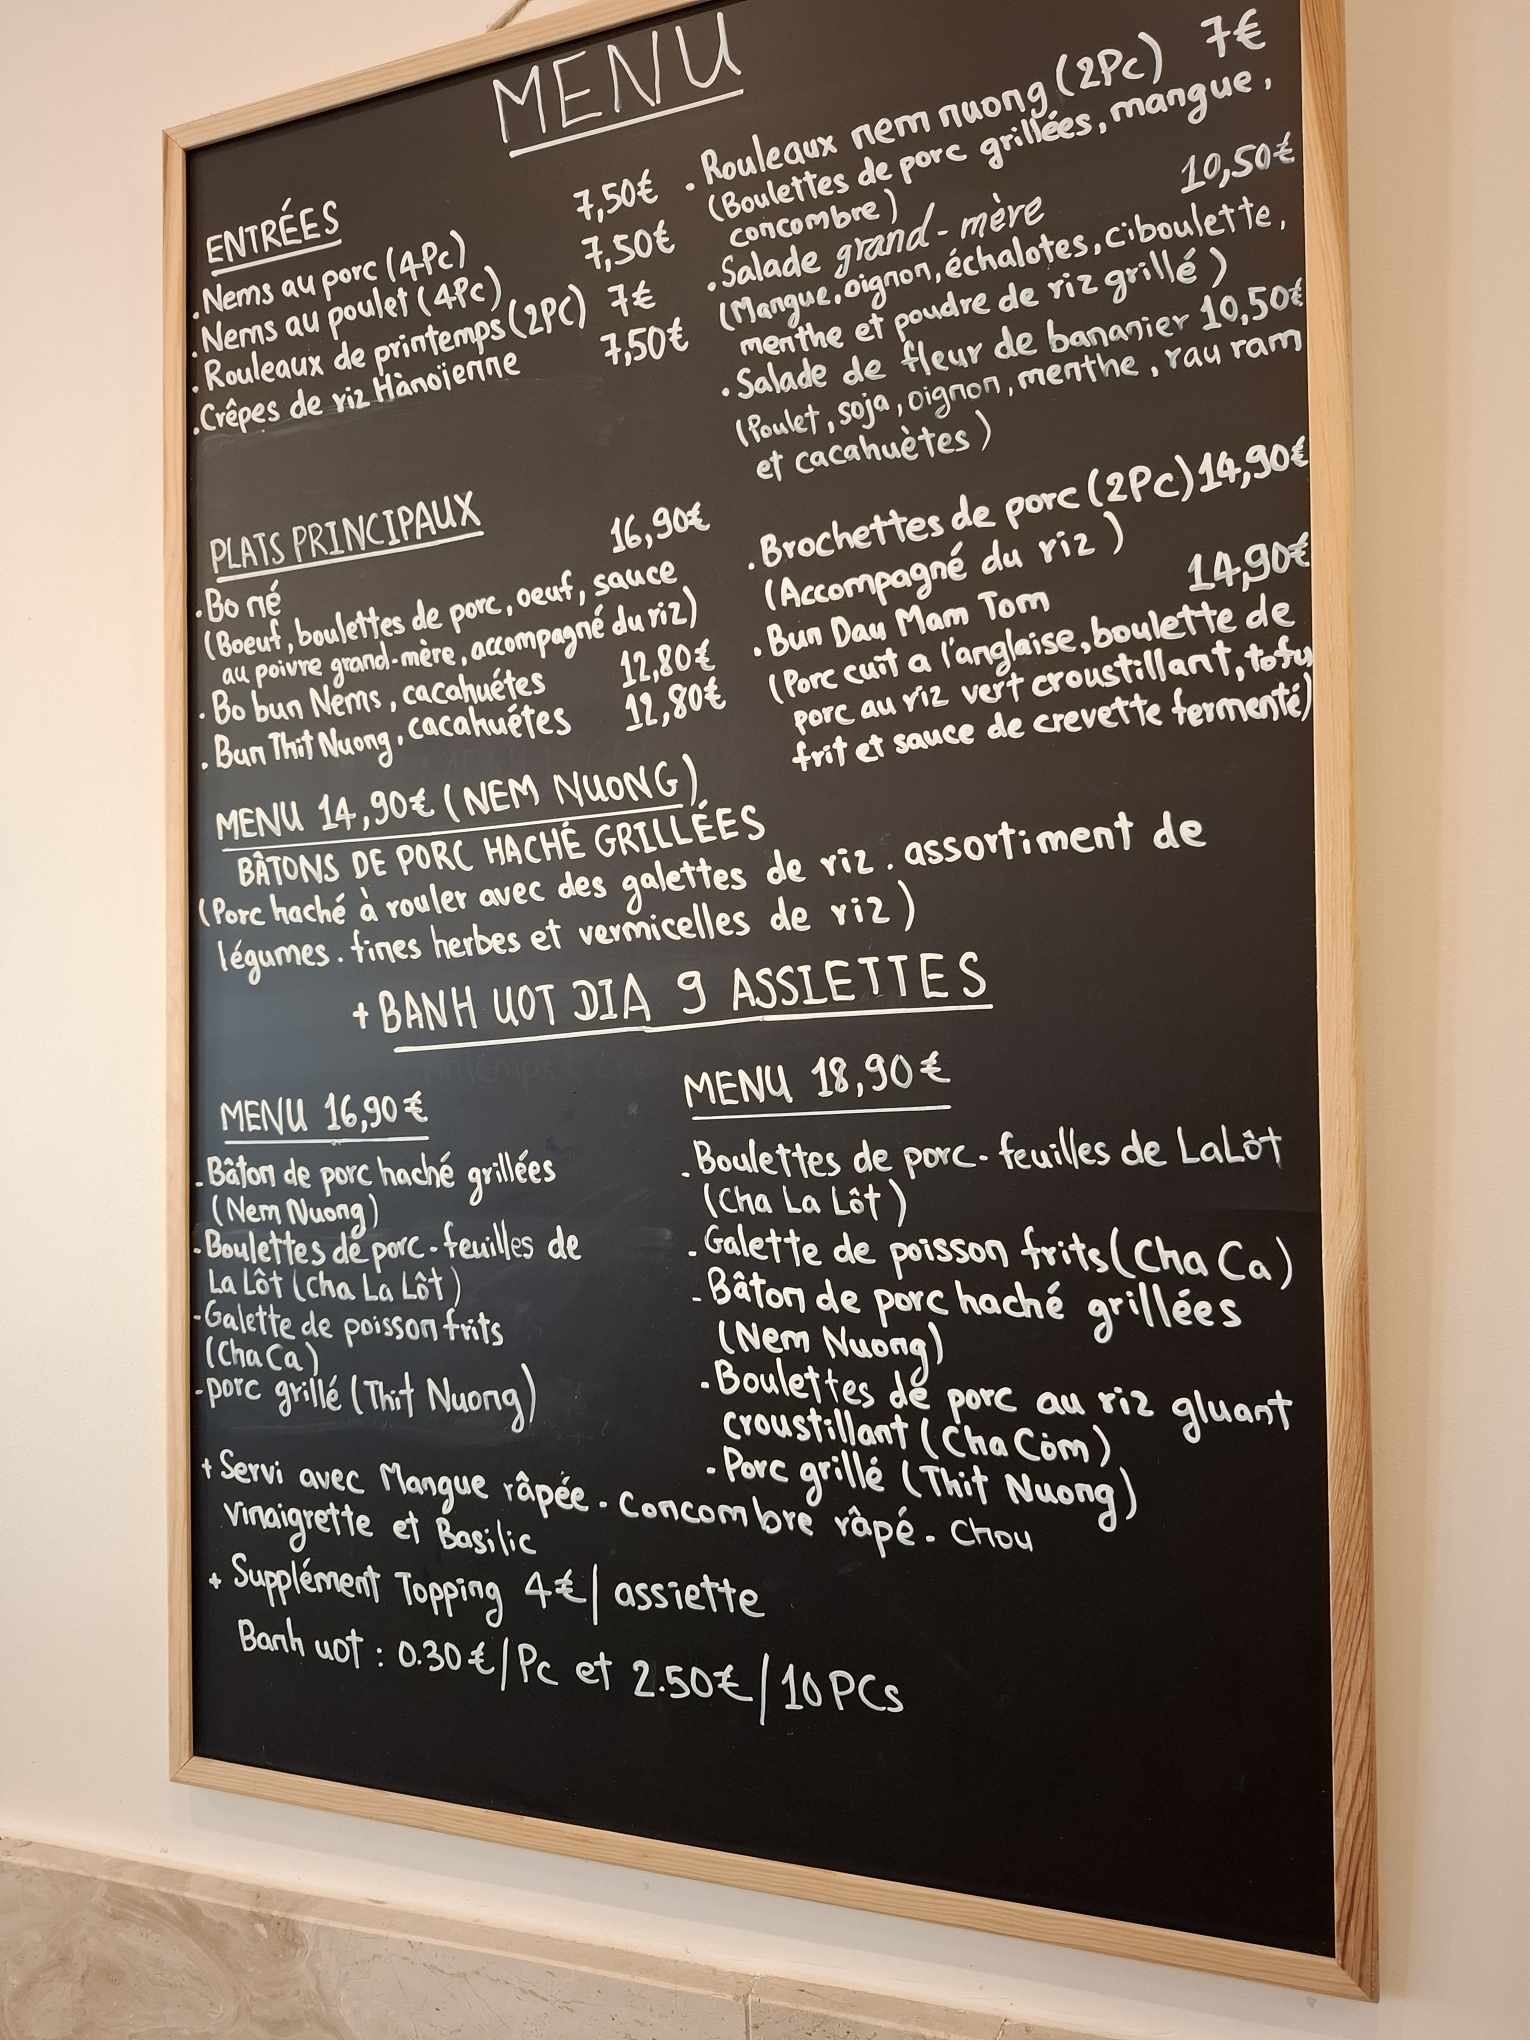 MENU
ENTRÉES
.Nems au porc (4Pc) 7,50€
.Nems au poulet (4Pc) 7,50€
.Rouleaux de printemps (2PC) 7€
.Crêpes de riz Hànoïenne 7,50€
. Rouleaux nem nuong (2Pc) 7€
(Boulettes de porc grillées, mangue,
concombre)
.Salade grand-mère 10,50€
(Mangue, oignon, échalotes, ciboulette,
menthe et poudre de riz grillé)
.Salade de fleur de bananier 10,50€
(Poulet, soja, oignon, menthe, rau ram
et cacahuètes)
PLATS PRINCIPAUX
.Bo né 16,90€
(Boeuf, boulettes de porc, oeuf, sauce
au poivre grand-mère, accompagné du riz)
. Bo bun Nems, cacahuétes 12,80€
. Bun Thit Nuong, cacahuétes 12,80€
.Brochettes de porc (2Pc) 14,90€
(Accompagné du riz)
.Bun Dau Mam Tom 14,90€
(Porc cuit a l'anglaise, boulette de
porc au riz vert croustillant, tofu
frit et sauce de crevette fermenté)
MENU 14,90€ (NEM NUONG)
BÂTONS DE PORC HACHÉ GRILLÉES
(Porc haché à rouler avec des galettes de riz. assortiment de
légumes. fines herbes et vermicelles de riz)
+ BANH UOT DIA 9 ASSIETTES
MENU 16,90€
- Bâton de porc haché grillées
(Nem Nuong)
- Boulettes de porc - feuilles de
La Lôt (Cha La Lôt)
- Galette de poisson frits
(Cha Ca)
- porc grillé (Thit Nuong)
MENU 18,90€
- Boulettes de porc - feuilles de LaLôt
(Cha La Lôt)
- Galette de poisson frits (Cha Ca)
- Bâton de porc haché grillées
(Nem Nuong)
- Boulettes de porc au riz gluant
croustillant (Cha Còm)
- Porc grillé (Thit Nuong)
+ Servi avec Mangue râpée - Concombre râpé - Chou
vinaigrette et Basilic
+ Supplément Topping 4€/ assiette
Banh uot : 0.30€/Pc et 2.50€/10PCs